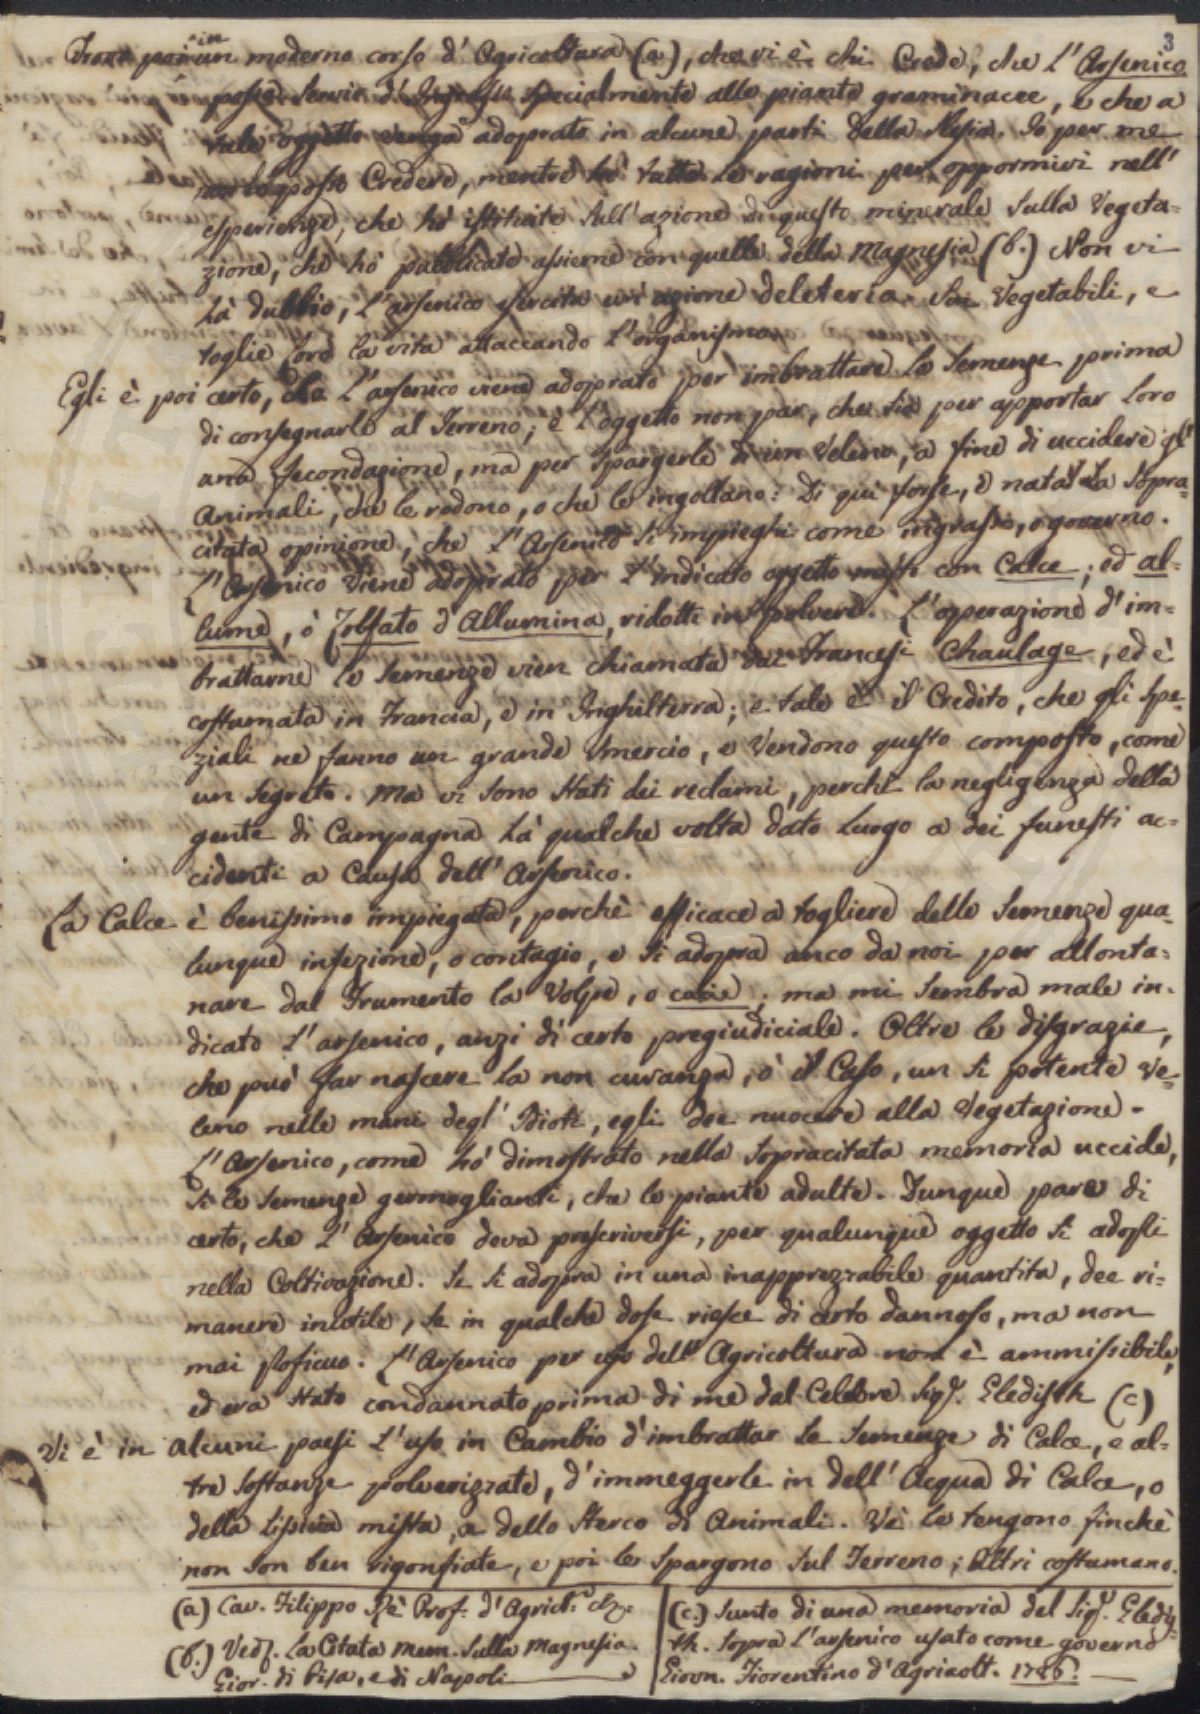 3
Trovo poi in un moderno corso d'Agricoltura (a), che vi è chi Crede, che L'Arsenico
possa servir d'Ingrasso specialmente alle piante graminacee, e che a
tale oggetto venga adoprato in alcune parti della Slesia. Io per me
non lo posso Credere, mentre hò tutte le ragioni per oppormivi nell'
esperienze, che hò istituite sull'azione di questo minerale sulla Vegeta-
zione, che hò pubblicate assieme con quelle della Magnesia (b.) Non vi
hà dubbio, L'arsenico esercita un'azione deleteria sui Vegetabili, e
toglie loro la vita attaccando L'organismo.
Egli è poi certo, che L'arsenico viene adoprato per imbrattare le Semenze prima
di consegnarle al Terreno; e l'oggetto non par, che sia per apportar loro
una fecondazione, ma per spargerle di un Veleno, a fine di uccidere gl'
Animali, che le rodono, o che le ingollano: Di qui forse, è nata La sopra-
citata opinione, che L'Arsenico si impieghi come ingrasso, o governo.
L'Arsenico viene adoprato per L'indicato oggetto misto con Calce; ed al-
lume, ò Zolfato d'Allumina, ridotti in polvere. L'operazione d'im-
brattarne le Semenze vien chiamata dai Francesi Chaulage, ed è
costumata in Francia, e in Inghilterra; e tale è il Credito, che gli spe-
ziali ne fanno un grande smercio, e vendono questo composto, come
un segreto. Ma vi sono stati dei reclami, perchè la negligenza della
gente di Campagna hà qualche volta dato luogo a dei funesti ac-
cidenti a Causa dell'Arsenico.
La Calce è benissimo impiegata, perchè efficace a togliere dalle Semenze qua-
lunque infezione, o contagio, e si adopra anco da noi per allonta-
nare dal Frumento la Volpe, o carie; ma mi sembra male in-
dicato L'arsenico, anzi di certo pregiudiciale. Oltre le disgrazie,
che può far nascere la non curanza, ò il Caso, un sì potente ve-
leno nelle mani degl'Idioti, egli dee nuocere alla Vegetazione.
L'Arsenico, come hò dimostrato nella sopracitata memoria uccide,
sì le Semenze germoglianti, che le piante adulte. Dunque pare di
certo, che L'Arsenico deva proscriversi, per qualunque oggetto si adopli
nella Coltivazione. Se si adopra in una inapprezzabile quantita, dee ri-
manere inutile, se in qualche dose riesce di certo dannoso, ma non
mai proficuo. L'Arsenico per uso dell'Agricoltura non è ammissibile,
ed era stato condannato prima di me dal Celebre Sigr. Gledisth (c)
Vi è in alcuni paesi L'uso in Cambio d'imbrattar le Semenze di Calce, e al-
tre sostanze polverizzate, d'immeggerle in dell'Acqua di Calce, o
della Lissivia mista, a dello sterco di Animali. Vi le tengono finchè
non son ben rigonfiate, e poi le spargono sul Terreno; Altri costumano.
(a) Cav. Filippo Rè Prof. d'Agricl.ra
(b.) Ved. La Citata Mem. sulla Magnesia.
Gior. di Pisa, e di Napoli
(c.) Sunto di una memoria del Sigr. Gledis-
th. sopra L'arsenico usato come governo
Giorn. Fiorentino d'Agricolt.